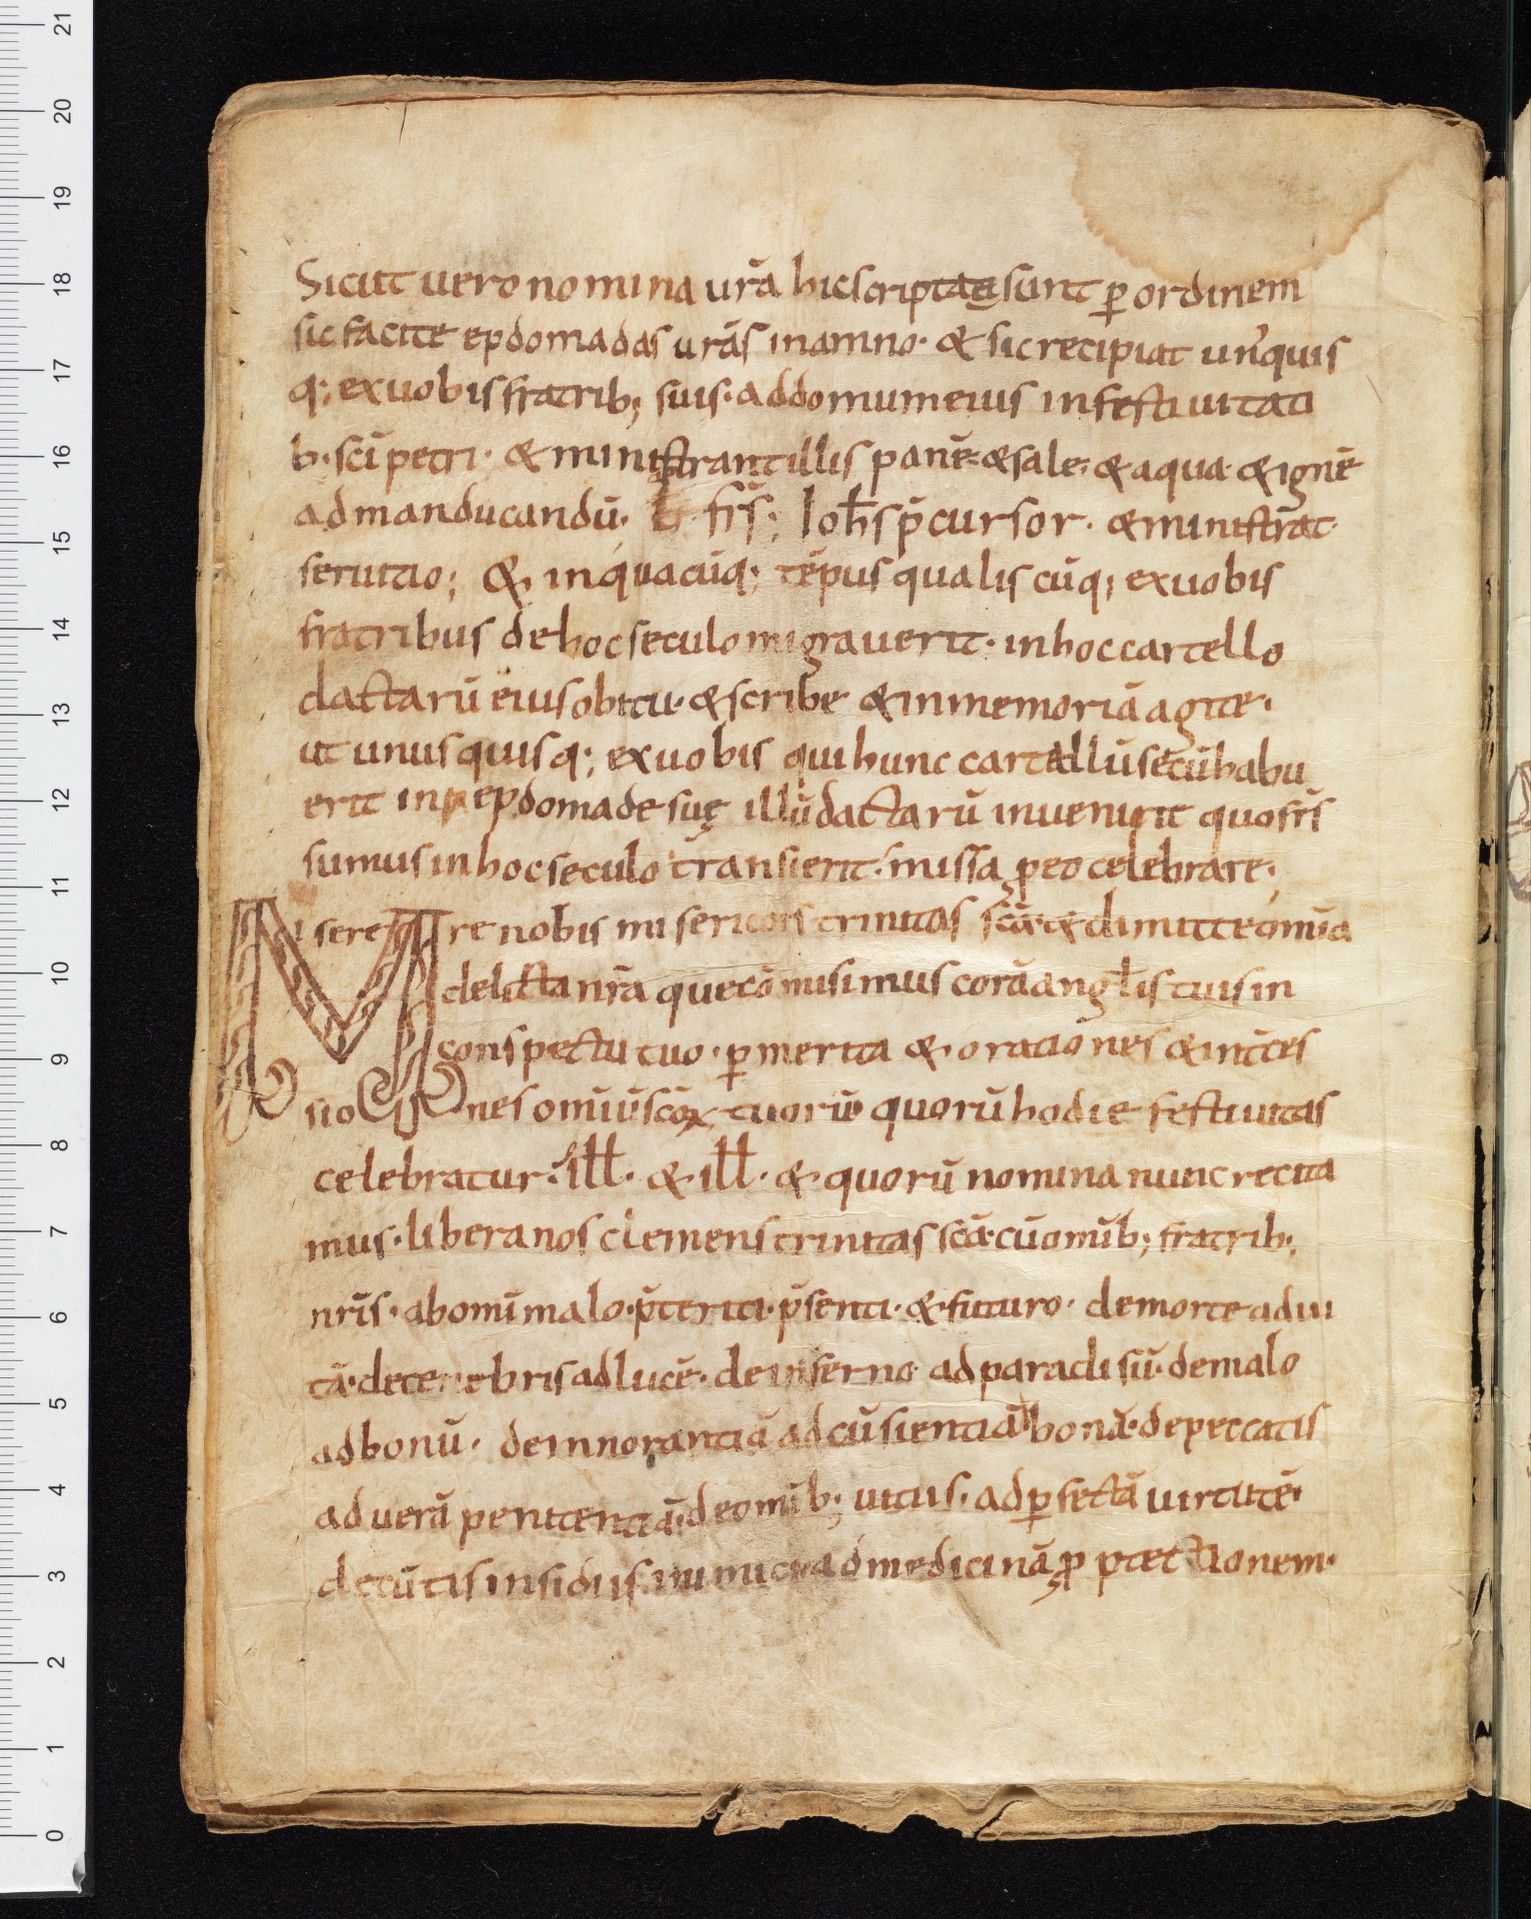 Sicut uero nomina ur̄a hic scriptaę sunt p̱ ordinem
sic facite epdomadas ur̄as in anno· & sic recipiat un'quis
q; ex uobis fratrib; suis· ad domum eius in festiuitati
b· sc̄i petri· & ministrant illis panē· & sale· & aqua· & ignē
ad manducandū· fr̄s; Ioh̄s p̄cursor· & ministrat·
seruitio; & in quacūq; tēpus qualis cūq; ex uobis
fratribus de hoc seculo migrauerit· in hoc cartello
dactarū eius obitu· & scribe & in memoriā agite·
ut unus quis q; ex uobis qui hunc cartellū secū habu
erit in epdomade suę illū dactarū inuenirit quo fr̄s
sumus in hoc seculo transierit· missa pro eo celebrare;
Miserere nobis misericors trinitas sc̄a· & dimitte om̄ia
delicta nr̄a que cōmisimus corā angl̄is tuis in
conspectu tuo· p̱ merita & orationes & int̄ces
siones omīū sc̄oꝝ tuorū quorū hodie festiuitas
celebratur· ill̄· & ill̄· & quorū nomina nunc recita
mus· libera nos clemens trinitas sc̄a· cū omīb; fratrib·
nr̄is· ab omī malo· p̄teriti· p̄senti· & futuro· de morte ad ui
tā· de tenebris ad lucē· de inferno ad paradisū· de malo
ad bonū· de innorantiā ad cūsientiā bonā· de peccatis
ad uerā penitentiā· de omīb; uitiis· ad p̱fectā uirtutē·
de cūtis insidiis inimici ad medicinā ꝓ ptectionem·